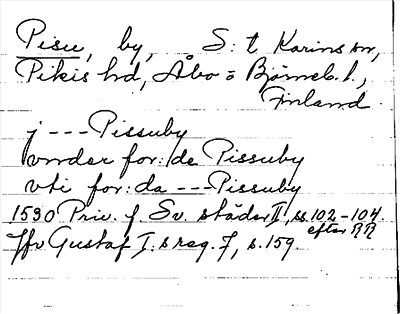 Pisu, by, S:t Karins sn,
Pikis hd, Åbo = Björneb. l.,
Finland.
j --- Pissuby
vnder for: de Pissuby
vti for: da --- Pissuby
1530 Priv. f Sv. städer II, s. 102-104.
efter RR
Jfr Gustaf I:s reg. 7, s. 159.